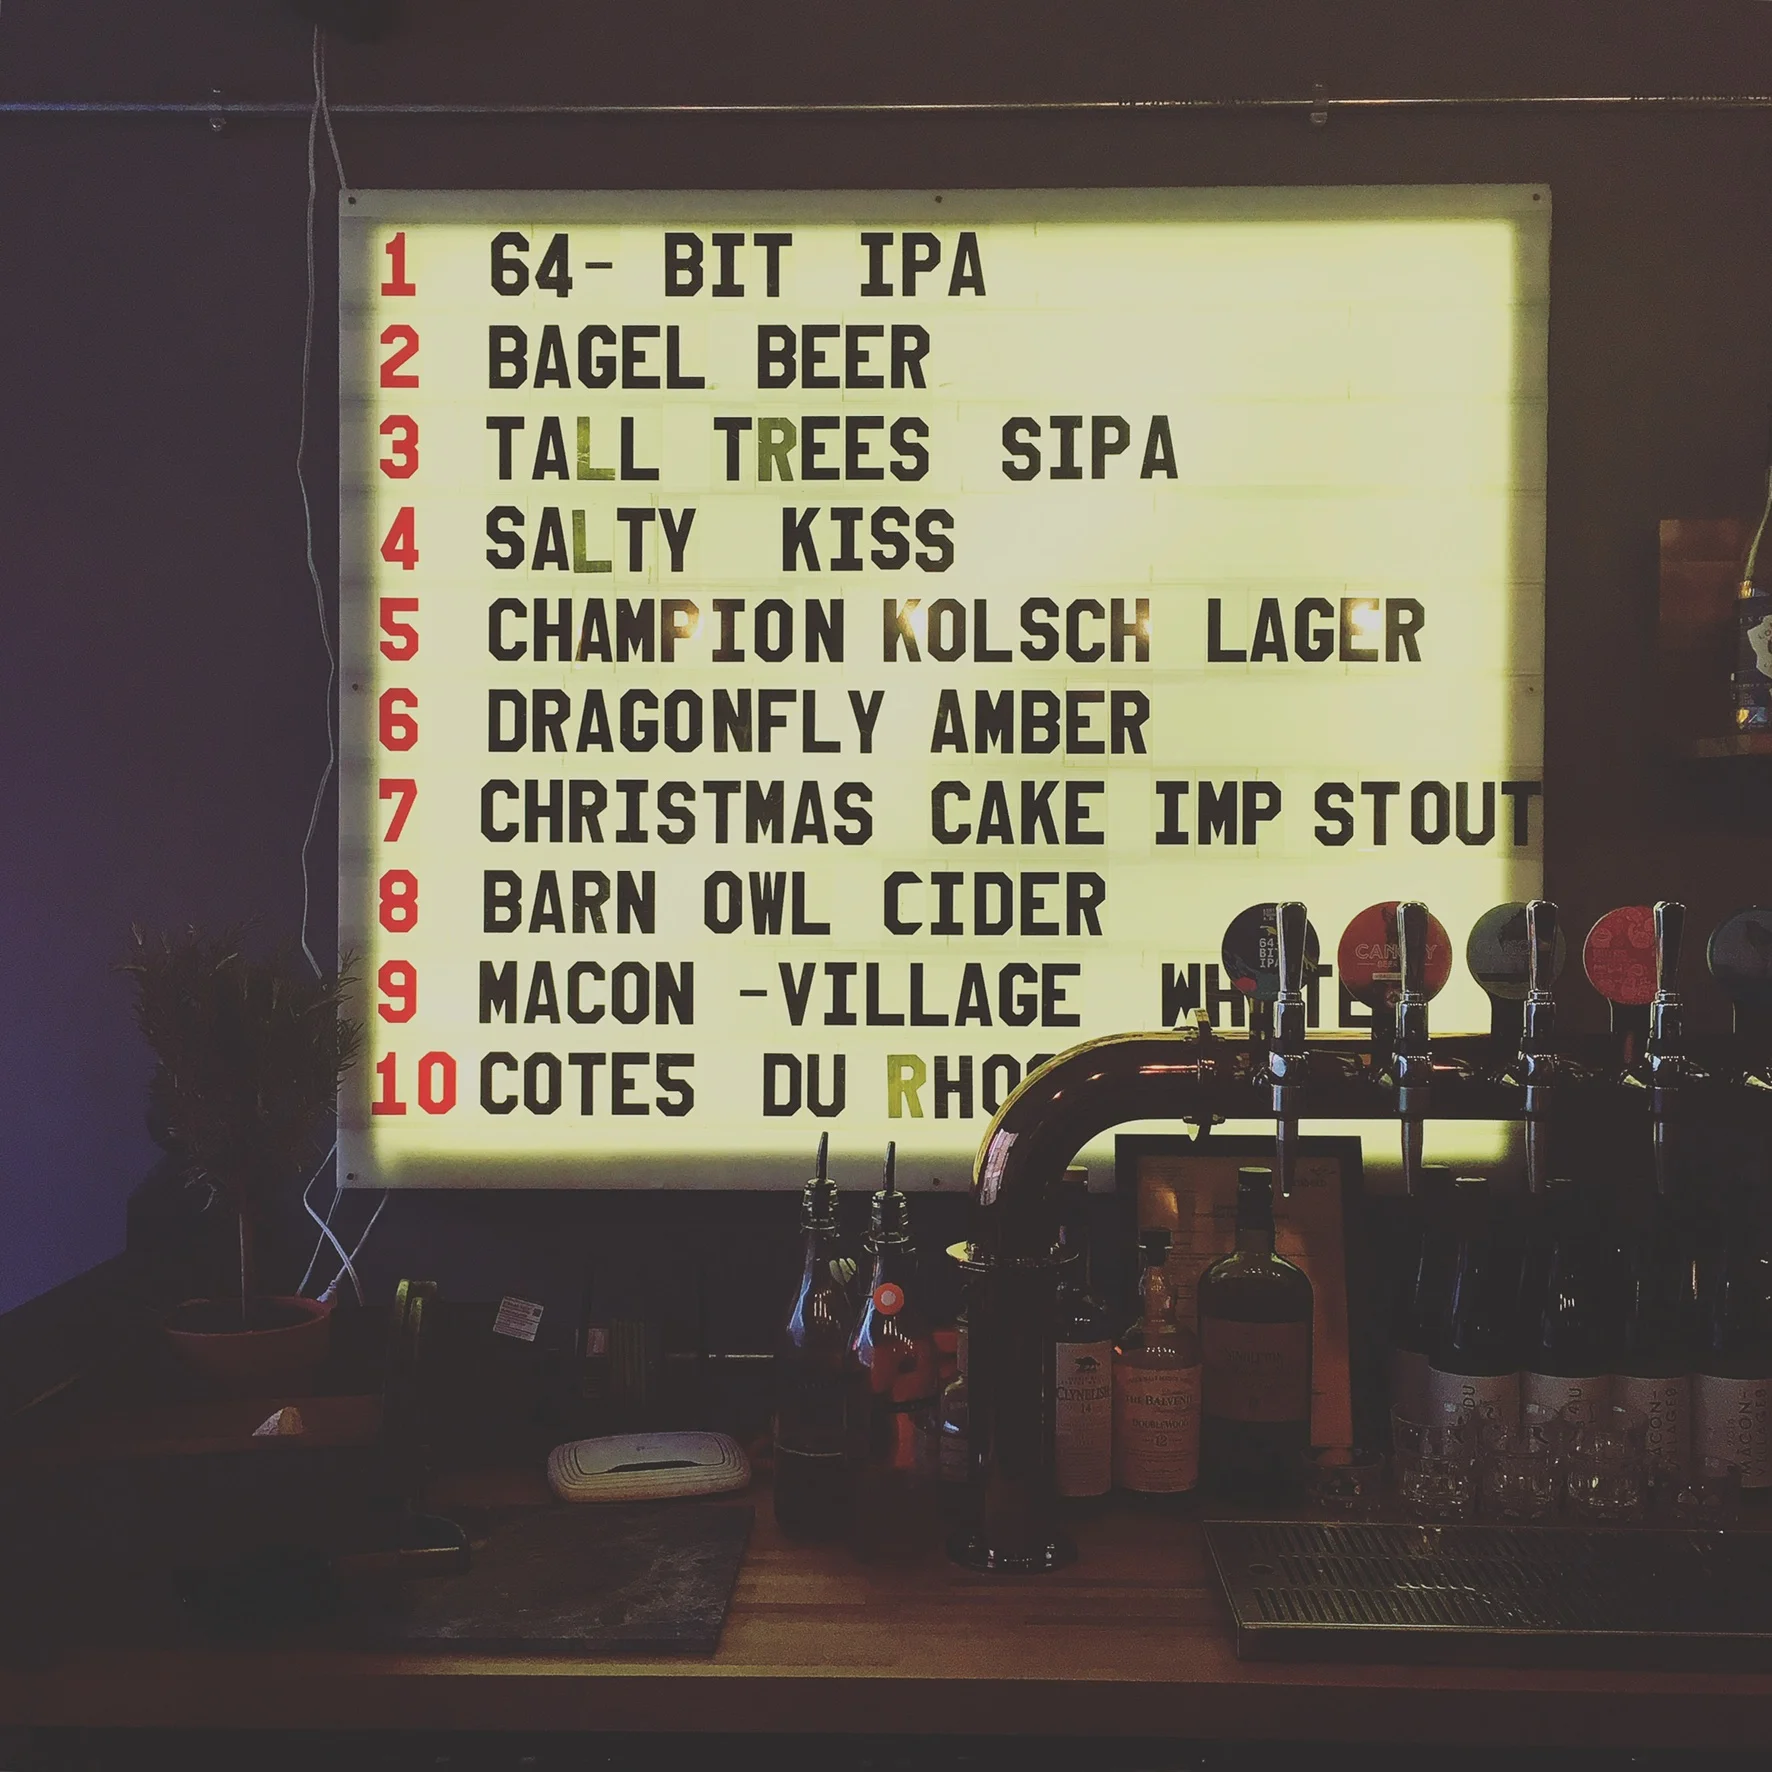 1 64- BIT IPA
2 BAGEL BEER
3 TALL TREES SIPA
4 SALTY KISS
5 CHAMPION KOLSCH LAGER
6 DRAGONFLY AMBER
7 CHRISTMAS CAKE IMP STOUT
8 BARN OWL CIDER
9 MACON -VILLAGE WHITE
10 COTES DU RHO
64-
BIT
IPA
CLYNELISH
14
THE BALVENIE
DOUBLEWOOD
12
DU
MACON-
VILLAGES
MACON-
VILLAGES